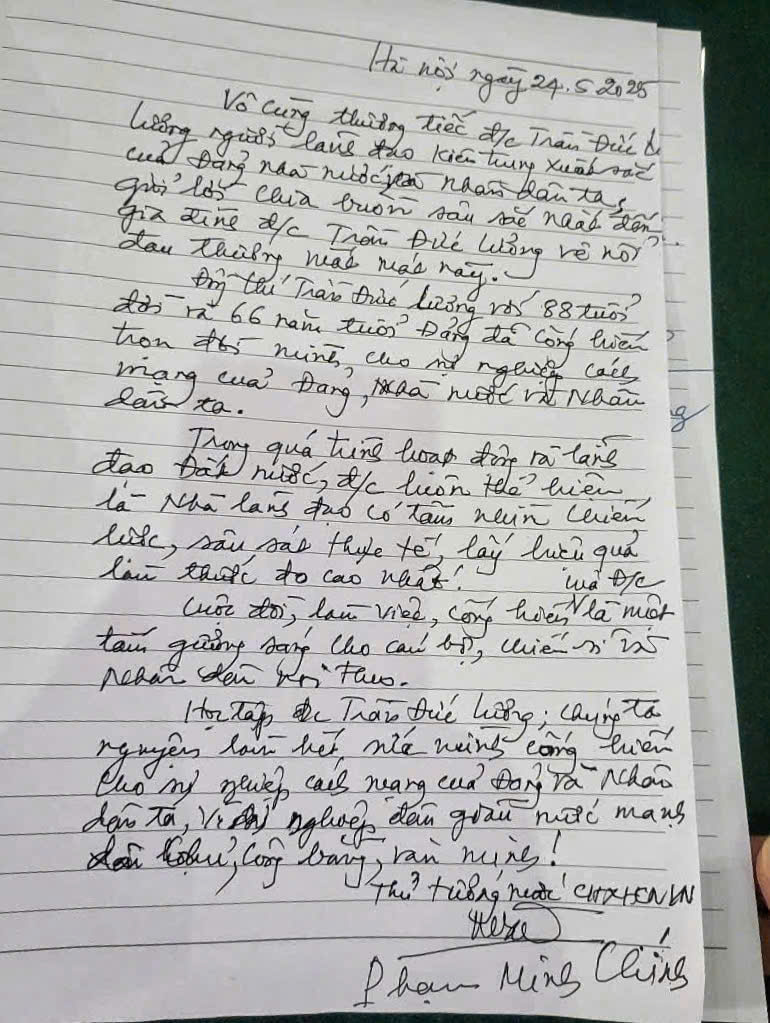 Hà nội ngày 24.5 2025
Vô cùng thương tiếc đ/c Trần Đức
Lương người lãnh đạo kiên trung xuất sắc
của Đảng nhà nước và nhân dân ta,
gửi lời chia buồn sâu sắc nhất đến
gia đình đ/c Trần Đức Lương về nỗi
đau thương mất mát này.
Đồng chí Trần Đức Lương với 88 tuổi
đời và 66 năm tuổi Đảng đã cống hiến
trọn đời mình, cho sự nghiệp cách
mạng của Đảng, Nhà nước và Nhân
dân ta.
Trong quá trình hoạt động và lãnh
đạo Đất nước, đ/c luôn thể hiện
là Nhà lãnh đạo có tầm nhìn chiến
lược, sâu sát thực tế, lấy hiệu quả
làm thước đo cao nhất!
của Đ/c
Cuộc đời, làm việc, cống hiến là một
tấm gương sáng cho cán bộ, chiến sĩ và
Nhân dân noi theo.
Học tập đ/c Trần Đức Lương; chúng ta
nguyện làm hết sức mình cống hiến
cho sự nghiệp cách mạng của Đảng và Nhân
dân ta, vì sự nghiệp dân giàu nước mạnh
dân chủ, công bằng, văn minh!
Thủ tướng nước CHXHCNVN
Phạm Minh Chính